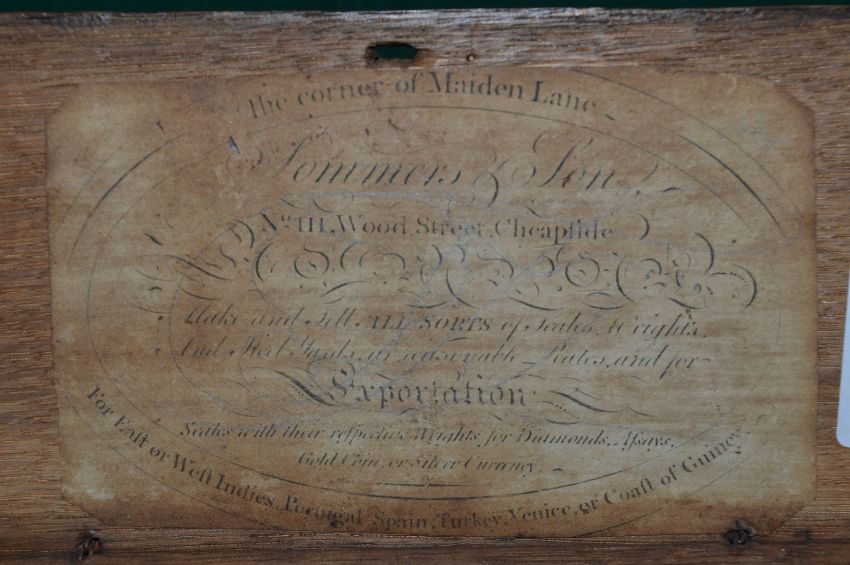 The corner of Maiden Lane
Sommers & Son
No. 111, Wood Street, Cheapſide
Make and Sell ALL SORTS of Scales, Weights,
And Steel Yards, at reasonable Rates, and for
Exportation
Scales with their reſpective Weights, for Diamonds, Aſsays,
Gold Coin, or Silver Currency
For Eaſt or Weſt Indies, Portugal, Spain, Turkey, Venice, or Coaſt of Guiney